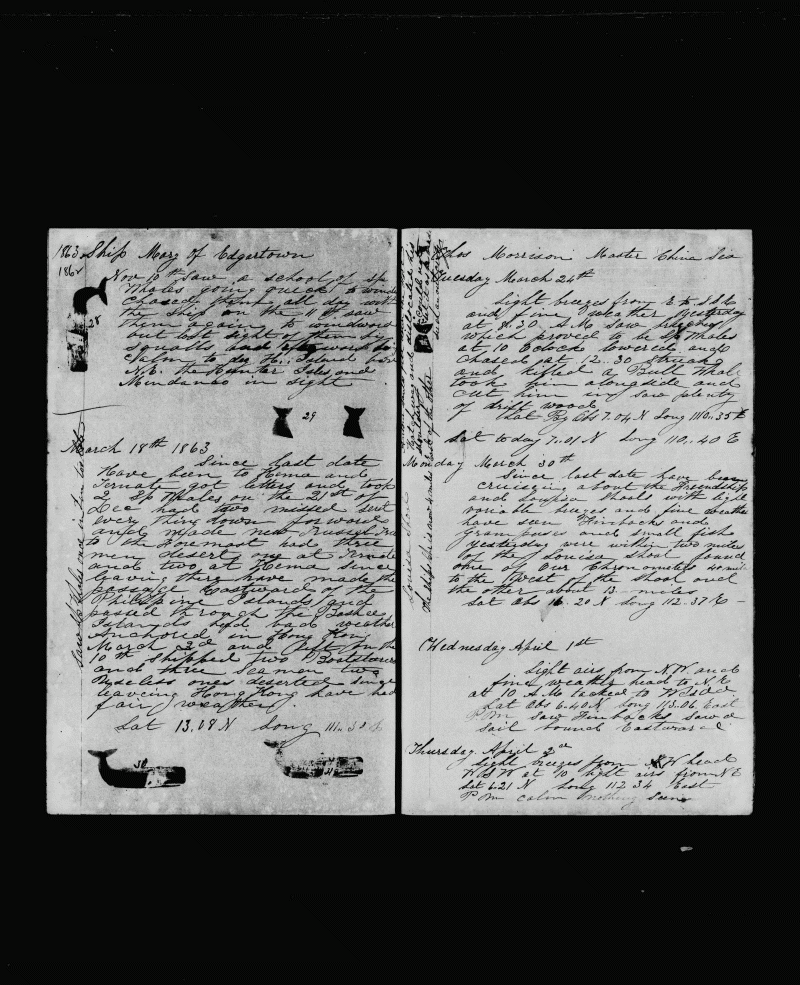 1863 Ship Mary of Edgertown
1862
Nov 13th Saw a school of Sp
Whales going quick to wind
Chased them all day with
the Ship on the 11th saw
them again to windward
but lost sight of them
squalls
Calm to day H. Island
N.E. the Hunter Isles and
Mindanao in sight
28
29
March 18th 1863
Since last date
Have been to Kema and
Ternate got letters and took
2 Sp Whales on the 21st of
Dec had two missed sent
every thing down forward
and made new Trussel Tree
to the Foremast had three
men desert one at Ternate
and two at Kema since
leaving there have made the
passage Eastward of the
Philipine Islands and
passed through the Bashee
Islands had bad weather
Anchored in Hong Kong
March 2d and left on the
10th Shipped two Boatsteerers
and three Seamen two
Useless ones deserted since
leaveing Hong Kong have had
fair weather
Lat 13.18 N Long 111.30 E
30
31
Chas Morrison Master China Sea
Tuesday March 24th
Light breezes from E to SSE
and fine weather Yesterday
at 8.30 A.M saw breaches
which proved to be Sp Whales
at 10 Oclock lowered and
chased at 12.30 struck
and killed a Bull Whale
took him alongside and
cut him in saw plenty
of drift wood
Lat By Obs 7.04 N Long 110..35 E
Lat to day 7.01 N Long 110..40 E
Monday March 30th
Since last date have been
cruising about the Friendship
and Louisa Shoals with light
variable breezes and fine weather
have seen Finbacks and
Grampuses and small fish
Yesterday were within two miles
of the Louisa Shoal found
one of our Chronometers 40 miles
to the West of the Shoal and
the other about 13 miles
Lat Obs 16.20 N Long 112.37 E
Louisa Shoal
Wednesday April 1st
Light airs from N.W and
fine weather head to N.E
at 10 A.M tacked to WSW
Lat Obs 6.40 N Long 113.06 East
P M saw Finbacks saw a
sail bound Eastward
Thursday April 2d
Light breezes from NW head
WSW at 10 light airs from NE
Lat 6.21 N Long 112 34 East
P M calm nothing seen